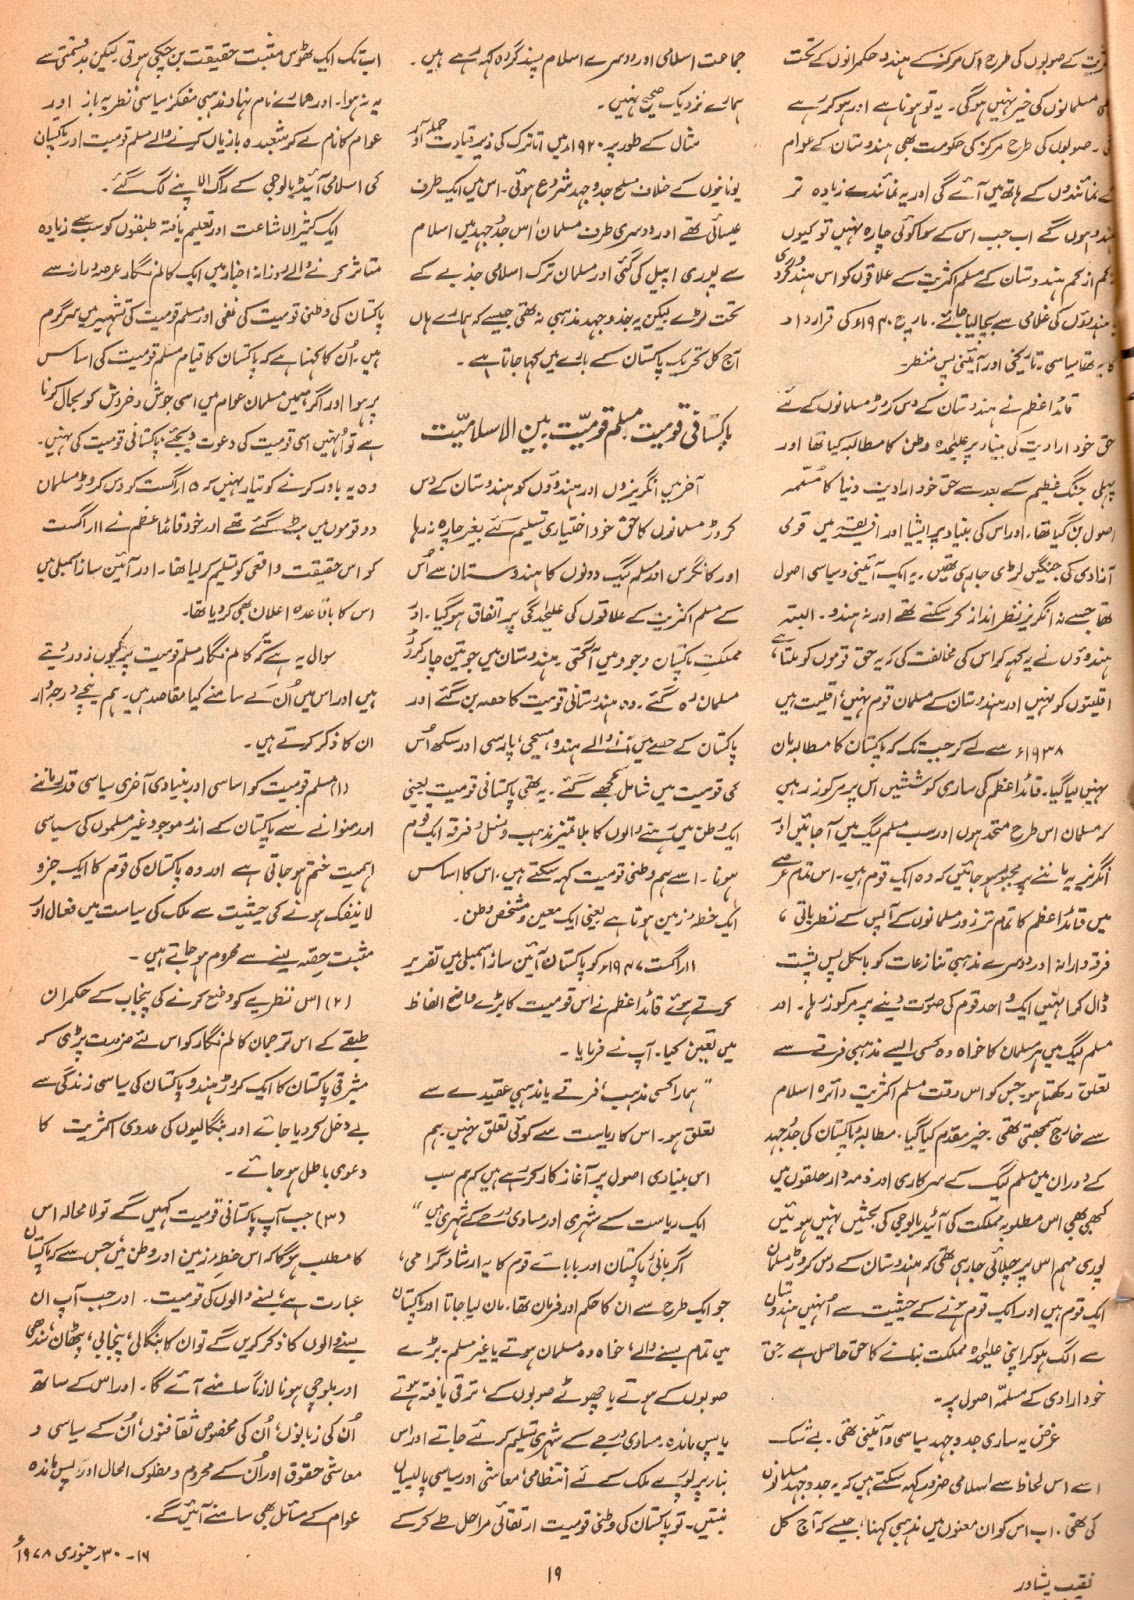 کے صوبوں کی طرح اس مرکز کے ہندو حکمرانوں کے تحت
مسلمانوں کی خیر نہیں ہوگی۔ یہ تو ہونا ہے اور ہو کر رہے
۔ صوبوں کی طرح مرکز کی حکومت بھی ہندوستان کے عوام
کے نمائندوں کے ہاتھ میں آئے گی اور یہ نمائندے زیادہ تر
ہندو ہوں گے اب جب اس کے سوا کوئی چارہ نہیں تو کیوں
کم از کم ہندوستان کے مسلم اکثریت کے علاقوں کو اس ہندو گردی
ہندوؤں کی غلامی سے بچا لیا جائے۔ مارچ ۱۹۴۰ء کی قرارداد
کا یہ تھا سیاسی۔ تاریخی اور آئینی پس منظر۔
قائداعظم نے ہندوستان کے دس کروڑ مسلمانوں کے لئے
حق خود ارادیت کی بنیاد پر علیٰحدہ وطن کا مطالبہ کیا تھا اور
پہلی جنگ عظیم کے بعد سے حق خود ارادیت دنیا کا مسلّمہ
اصول بن گیا تھا، اور اس کی بنیاد پر ایشیا اور افریقہ میں قومی
آزادی کی جنگیں لڑی جا رہی تھیں۔ یہ ایک آئینی و سیاسی اصول
تھا جسے نہ انگریز نظر انداز کر سکتے تھے اور نہ ہندو۔ البتہ
ہندوؤں نے یہ کہہ کر اس کی مخالفت کی کہ یہ حق قوموں کو ملتا ہے
اقلیتوں کو نہیں اور ہندوستان کے مسلمان قوم نہیں، اقلیت ہیں
۱۹۳۸ء سے لے کر جب تک کہ پاکستان کا مطالبہ مان
نہیں لیا گیا۔ قائداعظم کی ساری کوششیں اس پر مرکوز رہیں
کہ مسلمان اس طرح متحد ہوں اور سب مسلم لیگ میں آجائیں اور
انگریز یہ ماننے پر مجبور ہو جائیں کہ وہ ایک قوم ہیں۔ اس تمام عرصے
میں قائداعظم کا تمام تر زور مسلمانوں کے آپس کے نظریاتی،
فرقہ وارانہ اور دوسرے مذہبی تنازعات کو بالکل پس پشت
ڈال کر انہیں ایک واحد قوم کی صورت دینے پر مرکوز رہا۔ اور
مسلم لیگ میں ہر مسلمان کا خواہ وہ کسی ایسے مذہبی فرقے سے
تعلق رکھتا ہو۔ جس کو اس وقت مسلم اکثریت دائرہ اسلام
سے خارج سمجھتی تھی۔ خیر مقدم کیا گیا۔ مطالبۂ پاکستان کی جدوجہد
کے دوران میں مسلم لیگ کے سرکاری اور ذمہ دار حلقوں میں
کبھی بھی اس مطلوبہ مملکت کی آئیڈیالوجی کی بحثیں نہیں ہوئیں
پوری مہم اس پر چلائی جا رہی تھی کہ ہندوستان کے دس کروڑ مسلمان
ایک قوم ہیں اور ایک قوم ہونے کے حیثیت سے اُنہیں ہندوستان
سے الگ ہو کر اپنی علیٰحدہ مملکت بنانے کا حق حاصل ہے۔ حق
خود ارادی کے مسلّمہ اصول پر۔
غرض یہ ساری جدوجہد سیاسی و آئینی تھی۔ بے شک
اسے اس لحاظ سے اسلامی ضرور کہہ سکتے ہیں کہ یہ جدوجہد مسلمانوں
کی تھی۔ اب اس کو ان معنوں میں مذہبی کہنا، جیسے کہ آج کل
جماعت اسلامی اور دوسرے اسلام پسند گردہ کہہ رہے ہیں۔
ہمارے نزدیک صحیح نہیں۔
مثال کے طور پر ۱۹۲۰ء میں اتاترک کی زیر قیادت حملہ آور
یونانیوں کے خلاف مسلح جدوجہد شروع ہوئی۔ اس میں ایک طرف
عیسائی تھے اور دوسری طرف مسلمان، اس جدوجہد میں اسلام
سے پوری اپیل کی گئی اور مسلمان ترک اسلامی جذبے کے
تحت لڑے لیکن یہ جدوجہد مذہبی نہ تھی جیسے کہ ہمارے ہاں
آج کل تحریک پاکستان کے بارے میں کہا جاتا ہے۔
پاکستانی قومیت، مسلم قومیت، بین الاسلامیت
آخر میں انگریزوں اور ہندوؤں کو ہندوستان کے دس
کروڑ مسلمانوں کا حق خود اختیاری تسلیم کئے بغیر چارہ نہ رہا
اور کانگرس اور مسلم لیگ دونوں کا ہندوستان سے اُس
کے مسلم اکثریت کے علاقوں کی علیحدگی پر اتفاق ہو گیا۔ اور
مملکت پاکستان وجود میں آ گئی۔ ہندوستان میں جو تین چار کروڑ
مسلمان رہ گئے۔ وہ ہندوستانی قومیت کا حصہ بن گئے اور
پاکستان کے حصے میں آنے والے ہندو، مسیحی، پارسی اور سکھ اُس
کی قومیت میں شامل سمجھے گئے۔ یہ تھی پاکستانی قومیت یعنی
ایک وطن میں رہنے والوں کا بلا تمیز مذہب و نسل و فرقہ ایک قوم
ہونا۔ اسے ہم وطنی قومیت کہہ سکتے ہیں۔ اس کا اساس
ایک خطۂ زمین ہوتا ہے یعنی ایک معین و مشخص وطن۔
۱۱ اگست ۱۹۴۷ء کو پاکستان آئین ساز اسمبلی میں تقریر
کرتے ہوئے قائداعظم نے اس قومیت کا بڑے واضح الفاظ
میں تعین کیا۔ آپ نے فرمایا۔
"ہمارا کسی مذہب، فرقے یا مذہبی عقیدے سے
تعلق ہو۔ اس کا ریاست سے کوئی تعلق نہیں۔ ہم
اس بنیادی اصول پر آغاز کار کر رہے ہیں کہ ہم سب
ایک ریاست سے شہری اور مساوی درجے کے شہری ہیں"
اگر بانیٔ پاکستان اور بابائے قوم کا یہ ارشاد گرامی،
جو ایک طرح سے ان کا حکم اور فرمان تھا۔ مان لیا جاتا اور پاکستان
میں تمام بسنے والے، خواہ وہ مسلمان ہوتے یا غیر مسلم۔ بڑے
صوبوں کے ہوتے یا چھوٹے صوبوں کے، ترقی یافتہ ہوتے
یا پس ماندہ۔ مساوی درجے کے شہری تسلیم کر لئے جاتے اور اس
بنا پر پورے ملک کے لئے انتظامی، معاشی اور سیاسی پالیسیاں
بنتیں۔ تو پاکستان کی وطنی قومیت ارتقائی مراحل طے کر کے
اب تک ایک ٹھوس مثبت حقیقت بن چکی ہوتی۔ لیکن بدقسمتی سے
یہ نہ ہوا۔ اور ہمارے نام نہاد مذہبی مفکر، سیاسی نظریہ باز اور
عوام کا نام لے کر شعبدہ بازیاں کرنے والے مسلم قومیت اور پاکستان
کی اسلامی آئیڈیالوجی کے راگ الاپنے لگ گئے۔
ایک کثیر الاشاعت اور تعلیم یافتہ طبقوں کو سب سے زیادہ
متاثر کرنے والے روزانہ اخبار میں ایک کالم نگار عرصہ دراز سے
پاکستان کی وطنی قومیت کی نفی اور مسلم قومیت کی تشہیر میں سرگرم
ہیں۔ اُن کا کہنا ہے کہ پاکستان کا قیام مسلم قومیت کی اساس
پر ہوا اور اگر ہمیں مسلمان عوام میں اسی جوش و خروش کو بحال کرنا
ہے تو اُنہیں اسی قومیت کی دعوت دیجئے، پاکستانی قومیت کی نہیں۔
وہ یہ باور کرنے کو تیار نہیں کہ ۱۵ اگست کو دس کروڑ مسلمان
دو قوموں میں بٹ گئے تھے اور خود قائداعظم نے ۱۱ اگست
کو اس حقیقت واقعی کو تسلیم کر لیا تھا۔ اور آئین ساز اسمبلی میں
اس کا باقاعدہ اعلان بھی کر دیا تھا۔
سوال یہ ہے کہ یہ کالم نگار مسلم قومیت پر کیوں زور دیتے
ہیں اور اس میں اُن کے سامنے کیا مقاصد ہیں۔ ہم نیچے درجہ وار
ان کا ذکر کرتے ہیں۔
(۱) مسلم قومیت کو اساسی اور بنیادی آخری سیاسی قدر ماننے
اور منوانے سے پاکستان کے اندر موجود غیر مسلموں کی سیاسی
اہمیت ختم ہو جاتی ہے اور وہ پاکستان کی قوم کا ایک جزو
لاینفک ہونے کی حیثیت سے ملک کی سیاست میں فعال اور
مثبت حصہ لینے سے محروم ہو جاتے ہیں۔
(۲) اس نظریے کو وضع کرنے کی پنجاب کے حکمران
طبقے کے اس ترجمان کالم نگار کو اس لئے ضرورت پڑی کہ
مشرقی پاکستان کا ایک کروڑ ہندو پاکستان کی سیاسی زندگی سے
بے دخل کر دیا جائے اور بنگالیوں کی عددی اکثریت کا
دعویٰ باطل ہو جائے۔
(۳) جب آپ پاکستانی قومیت کہیں گے تو لامحالہ اس
کا مطلب ہوگا کہ اس خطۂ زمین اور وطن میں جس سے کہ پاکستان
عبارت ہے، بسنے والوں کی قومیت۔ اور جب آپ ان
بسنے والوں کا ذکر کریں گے تو ان کا بنگالی، پنجابی، پٹھان، سندھی
اور بلوچی ہونا لازماً سامنے آئے گا۔ اور اس کے ساتھ
اُن کی زبانوں، اُن کی مخصوص ثقافتوں، اُن کے سیاسی و
معاشی حقوق اور اُن کے محروم و مفلوک الحال اور پس ماندہ
عوام کے مسائل بھی سامنے آئیں گے۔
۱۶-۳۰ جنوری ۱۹۷۸ء
۱۹
نقیب پشاور